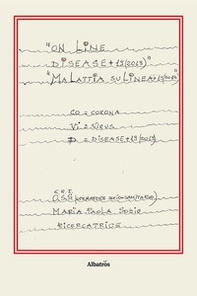 "ON LINE
DISEASE+19(2019)"
"MALATTIA SU LINEA+19/2019"
CO = CORONA
VI = VIRUS
D = DISEASE+19/2019)
O.S.S.
MARIA PAOLA
RICERCATRICE
Albatros